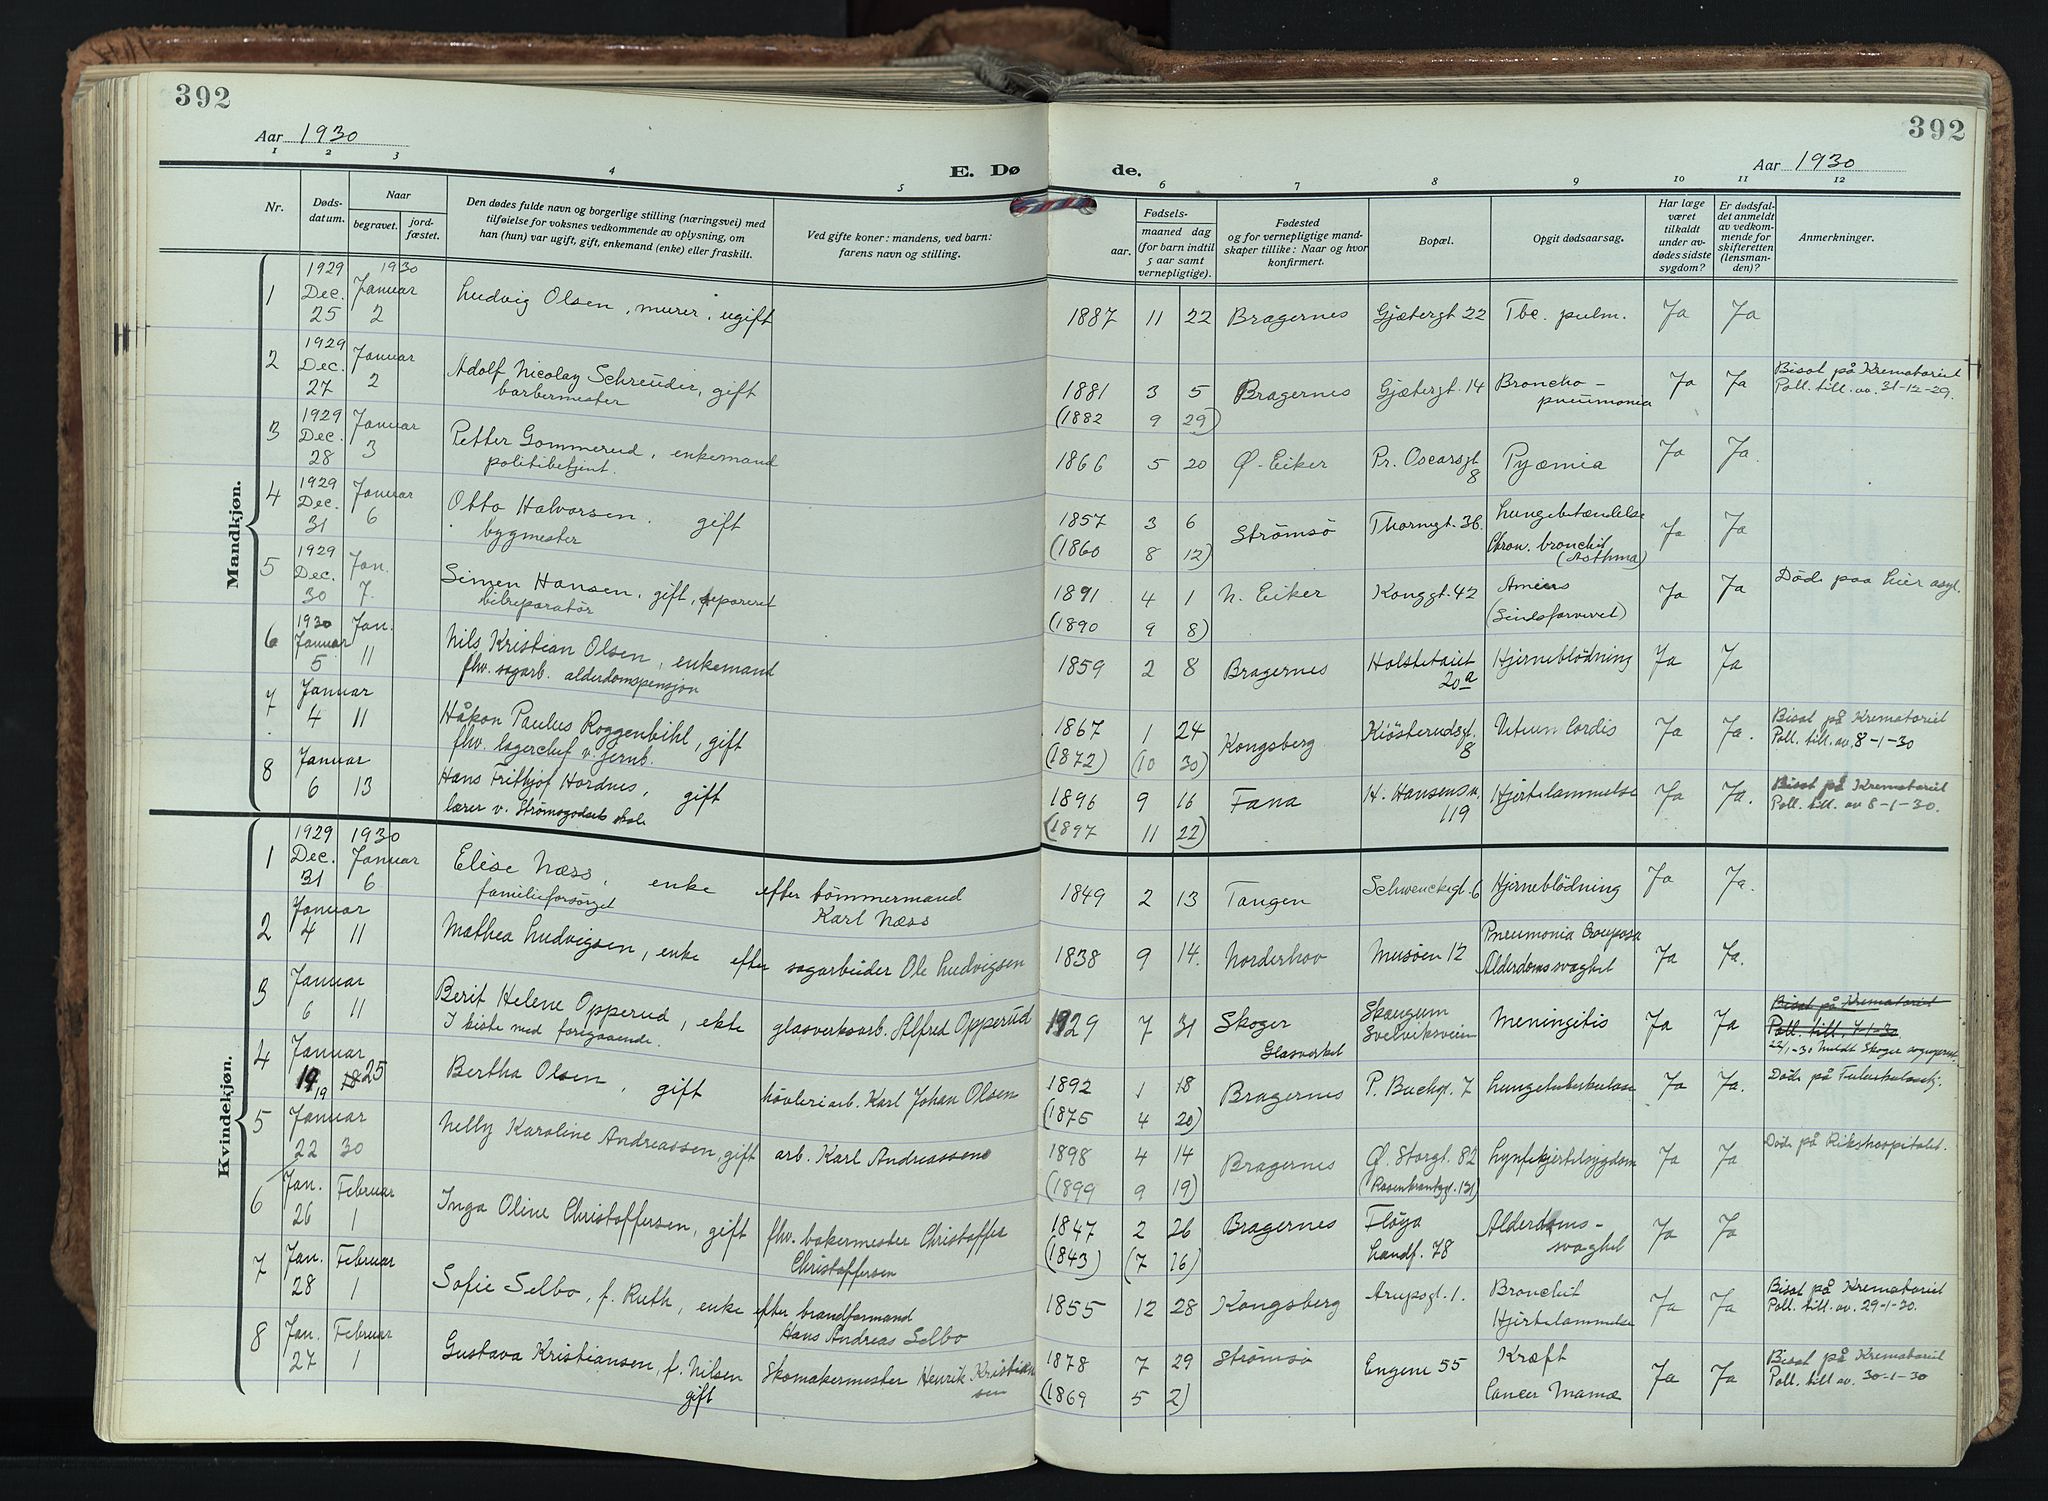 392
392
Aar 1930
E. Døde.
Aar 1930
1 2 3 4 5 6 7 8 9 10 11 12
Nr.
Døds-
datum.
Naar
begravet.
jord-
fæstet.
Den dødes fulde navn og borgerlige stilling (næringsvei) med
tilføielse for voksnes vedkommende av oplysning, om
han (hun) var ugift, gift, enkemand (enke) eller fraskilt.
Ved gifte koner: mandens, ved barn:
farens navn og stilling.
Fødsels-
aar. maaned dag
(for barn indtil
5 aar samt
vernepligtige).
Fødested
og for vernepligtige mand-
skaper tillike: Naar og hvor
konfirmert.
Bopæl.
Opgit dødsaarsag.
Har læge
været
tilkaldt
under av-
dødes sidste
sygdom?
Er dødsfal-
det anmeldt
av vedkom-
mende for
skifteretten
(lensman-
den)?
Anmerkninger.
Mandkjøn.
1 1929 Dec. 25 1930 Januar 2 Ludvig Olsen, murer, ugift 1887 11 22 Bragernes Gjætergt 22 Tbc. pulm. Ja Ja
2 1929 Dec. 27 Januar 2 Adolf Nicolay Schreuder, gift 1881 3 5 Bragernes Gjætergt. 14 Broncho- Ja Ja Bisat på Krematoriet
barbermester (1882 9 29) pneumonia Poll. till. av. 31-12-29.
3 1929 Dec. 28 Januar 3 Petter Gommerud, enkemand 1866 5 20 Ø. Eiker Pr. Oscarsgt. 8 Pyæmia Ja Ja
politibetjent.
4 1929 Dec. 31 Januar 6 Otto Halvorsen. gift 1857 3 6 Strømsø Thornegt. 36 Lungebetændelse Ja Ja
bygmester (1860 8 12) Chron. bronchit (Asthma)
5 1929 Dec. 30 Jan. 7. Simen Hansen, gift, separeret 1891 4 1 N. Eiker Konggt. 42 Ja Ja Døde paa Lier asyl
bilreparatør (1890 9 8) (Sindsforvirret)
6 1930 Januar 5 Jan. 11 Nils Kristian Olsen, enkemand 1859 2 8 Bragernes 20a Hjerneblødning Ja Ja
fhv. sagarb. alderdomspensjon
7 Januar 4 11 Håkon Paulus Roggenbihl, gift 1867 1 24 Kongsberg Kiøsterudsgt. 8 Vitium Cordis Ja Ja. Bisat på Krematoriet
fhv. lagerchef v. Jernb. (1872) (10 30) Poll. till. av. 8-1-30
8 Januar 6 13 Hans Frithjof Hordnes, gift 1896 9 16 Fana H. Hansensv. 119 Hjertelammelse Ja Ja. Bisat på Krematoriet
lærer v. Strømsgodsets skole (1897 11 22) Poll. till. av 8-1-30.
Kvindekjøn.
1 1929 Dec. 31 1930 Januar 6 Elise Næss, enke efter tømmermand 1849 2 13 Tangen Schwenckegt. 6 Hjerneblødning Ja Ja.
familieforsørget Karl Næss
2 Januar 4 11 Mathea Ludvigsen, enke efter sagarbeider Ole Ludvigsen 1838 9 14. Norderhov Musøen 12 Pneumonia Crouposa Ja Ja.
Alderdomssvaghet
3 Januar 6 11 Berit Helene Opperud, ekte glasverksarb. Alfred Opperud 1929 7 31 Skoger Skaugum Meningitis Ja Ja Bisat på Krematoriet
I kiste med foregaaende. Glasverket Svelviksveien Poll. till. 7-1-30
22/1-30 meldt Skoger sogneprest.
4 Januar 19 19 18 25 Bertha Olsen, gift høvleriarb. Karl Johan Olsen 1892 1 18 Bragernes P. Buchgt. 7 Lungetuberkulose Ja Ja. Døde på
(1875 4 20)
5 Januar 22 30 Nelly Karoline Andreassen, gift arb. Karl Andreassen 1898 4 14 Bragernes Ø. Storgt. 82 Lymfekjertelsygdom Ja Ja Døde på Rikshospitalet.
(1899 9 19) (Rosenkrantzgt. 131)
6 Jan. 26 Februar 1 Inga Oline Christoffersen, gift fhv. bakermester Christoffer 1847 2 26 Bragernes Fløya Alderdoms- Ja Ja
Christoffersen (1843) (7 16) Landf. 78 svaghet
7 Jan. 28 Februar 1 Sofie Selbo, f. Ruth, enke efter brandformand 1855 12 28 Kongsberg Arupsgt. 1. Bronchit Ja Ja Bisat på Krematoriet
Hans Andreas Selbo Hjertelammelse Poll. till. av. 29-1-30.
8 Jan. 27 Februar 1 Gustava Kristiansen, f. Nilsen Skomakermester Henrik Kristian 1878 7 29 Strømsø Engene 55 Kræft Ja Ja Bisat på Krematoriet
gift sen (1869 5 2) Cancer Mamæ Poll. till av. 30-1-30